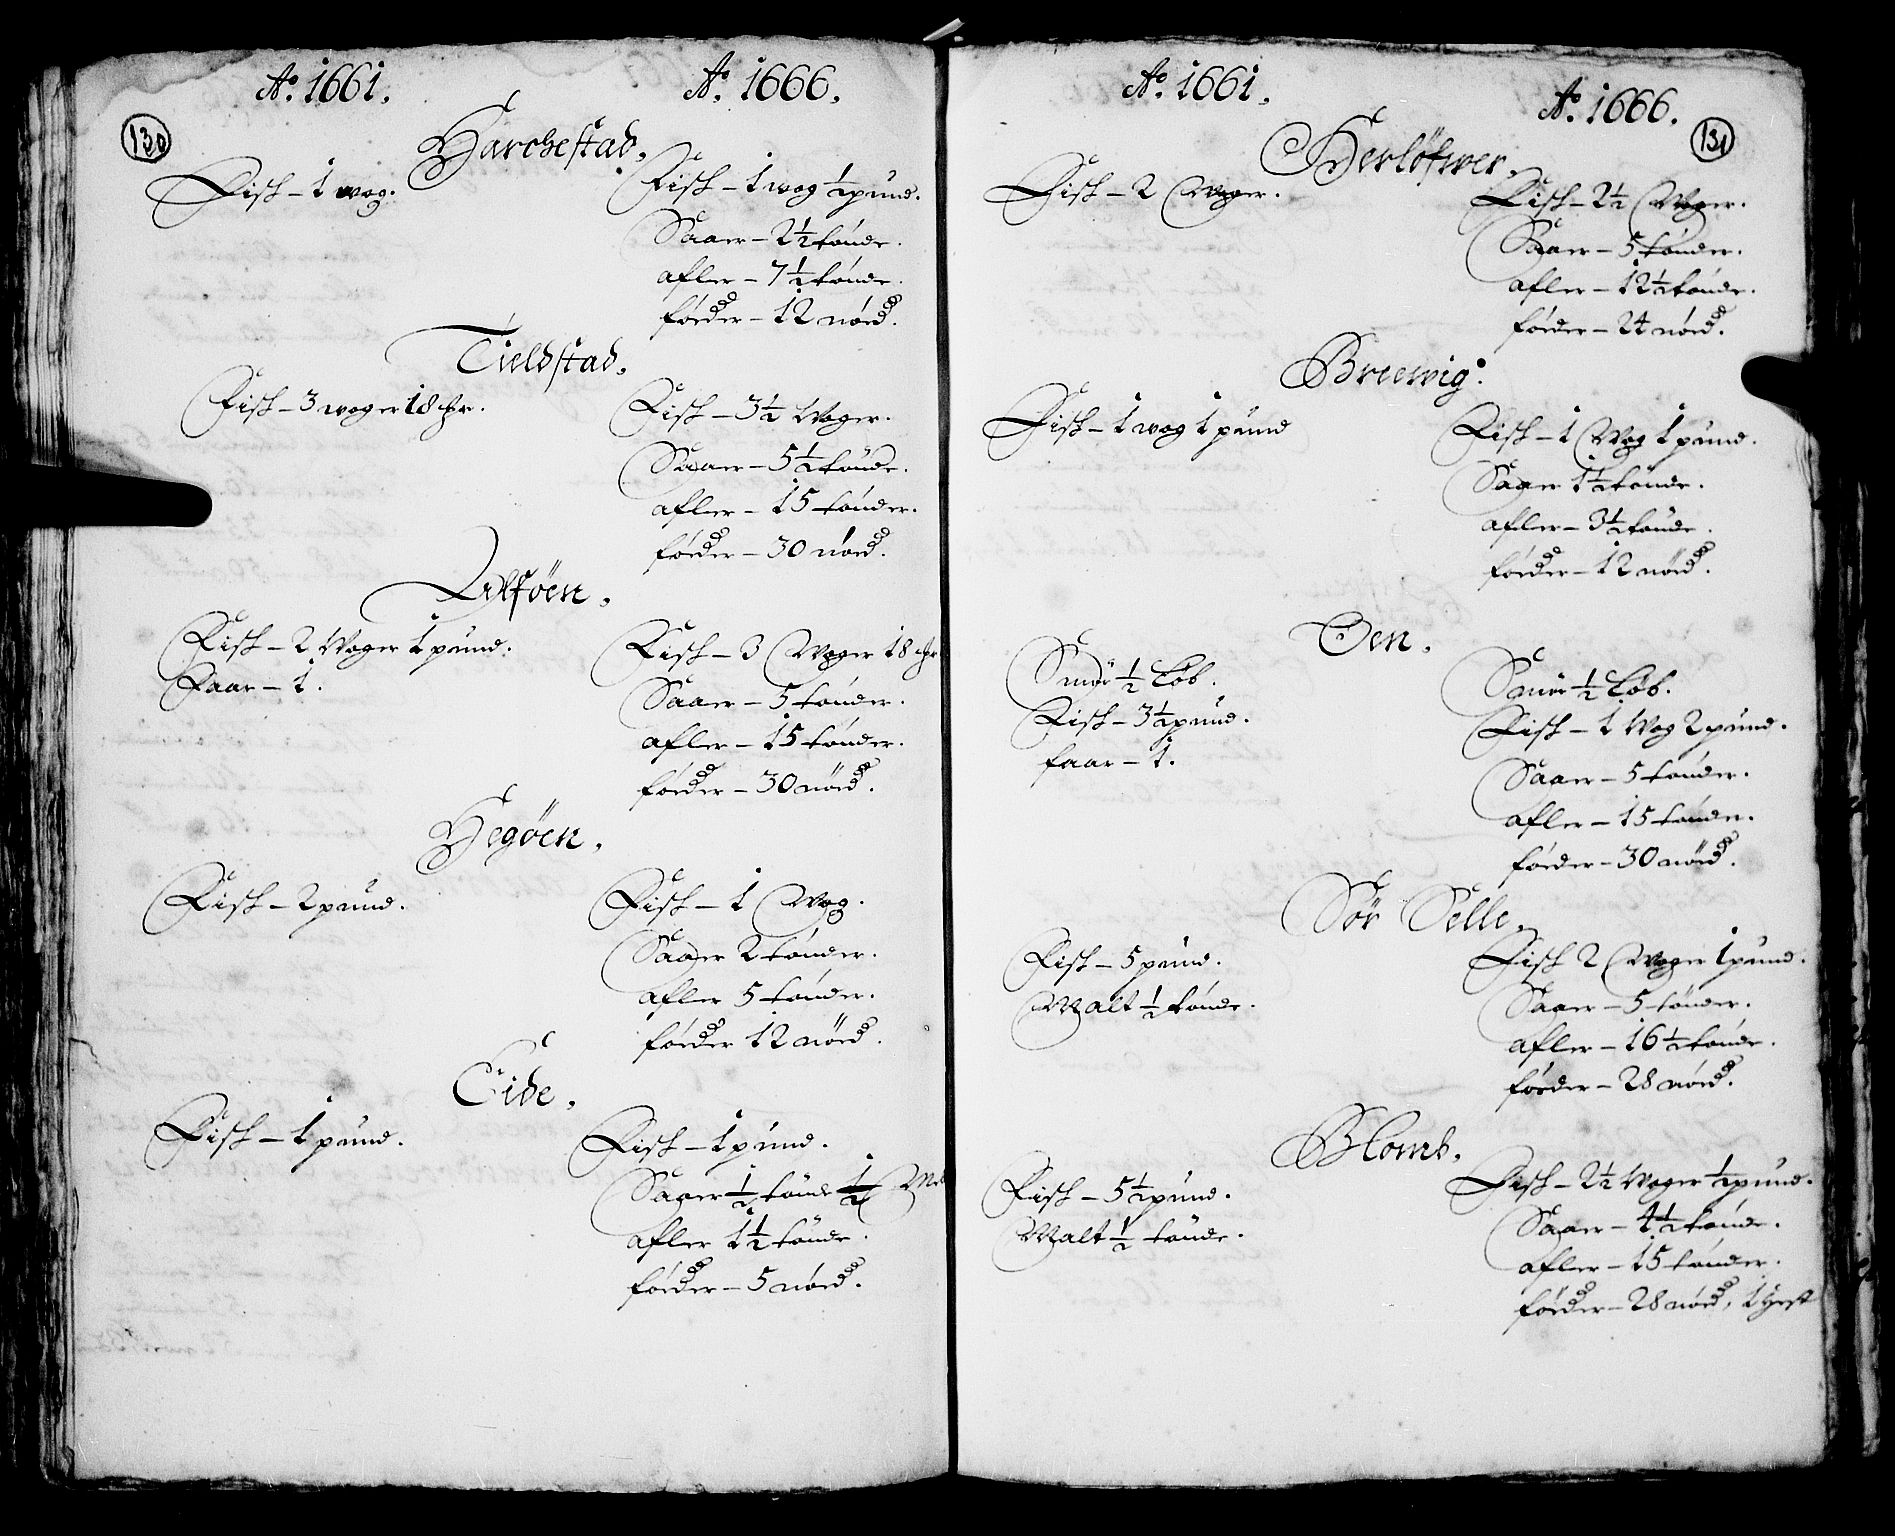 Aº. 1661.
Aº. 1666.
130
Harchestad.
Fisk – 1 wog.
Fisk – 1 wog ½ pund.
Saaer – 2½ tønde.
afler – 7½ tønde.
føeder – 12 nöed.
Tieldstad.
Fisk – 3 woger 18
Fisk – 3½ Woger.
Saaer – 5½ tönde.
afler – 15 tönder.
föeder – 30 nöed.
öen.
Fisk – 2 Woger 1 pund.
Faar – 1.
Fisk – 3 Woger 18
Saaer – 5 tönder.
afler – 15 tönder.
föeder – 30 nöed.
Hegöen.
Fisk – 2 pund.
Fisk – 1 Wog.
Saaer 2 tönder.
afler 5 tönder.
föeder 12 nöed.
Eide.
Fisk – 1 pund.
Fisk – 1 pund.
Saaer ½ tönde
afler 1½ tönde.
föeder – 5 nöed.
Aº. 1661.
Aº. 1666.
131
Herlöfwer.
Fisk – 2 Woger.
Fisk – 2½ Woger.
Saaer – 5 tönder.
afler – 12½ tönde.
föeder – 24 nöed.
Breewig.
Fisk – 1 wog 1 pund
Fisk – 1 Wog 1 pund.
Saaer 1½ tönde.
afler – 3½ tönde.
föeder – 12 nöed.
Öen.
Smör ½ Löb.
Fisk – 3½ pund.
faar – 1.
Smör ½ Löb.
Fisk – 1 Wog 2 pund.
Saaer – 5 tönder.
afler – 15 tönder.
föeder – 30 nöed.
Sör Selle.
Fisk – 5 pund.
Malt ½ tönde.
Fisk 2 Woger 1 pund.
Saaer – 5 tönder.
afler – 16½ tönde.
föeder – 28 nöed.
Blomb.
Fisk – 5½ pund.
Malt ½ tönde.
Fisk – 2½ Woger ½ pund.
Saaer – 4½ tönde.
afler – 15 tönder.
föeder – 28 nöed, 1 Hest